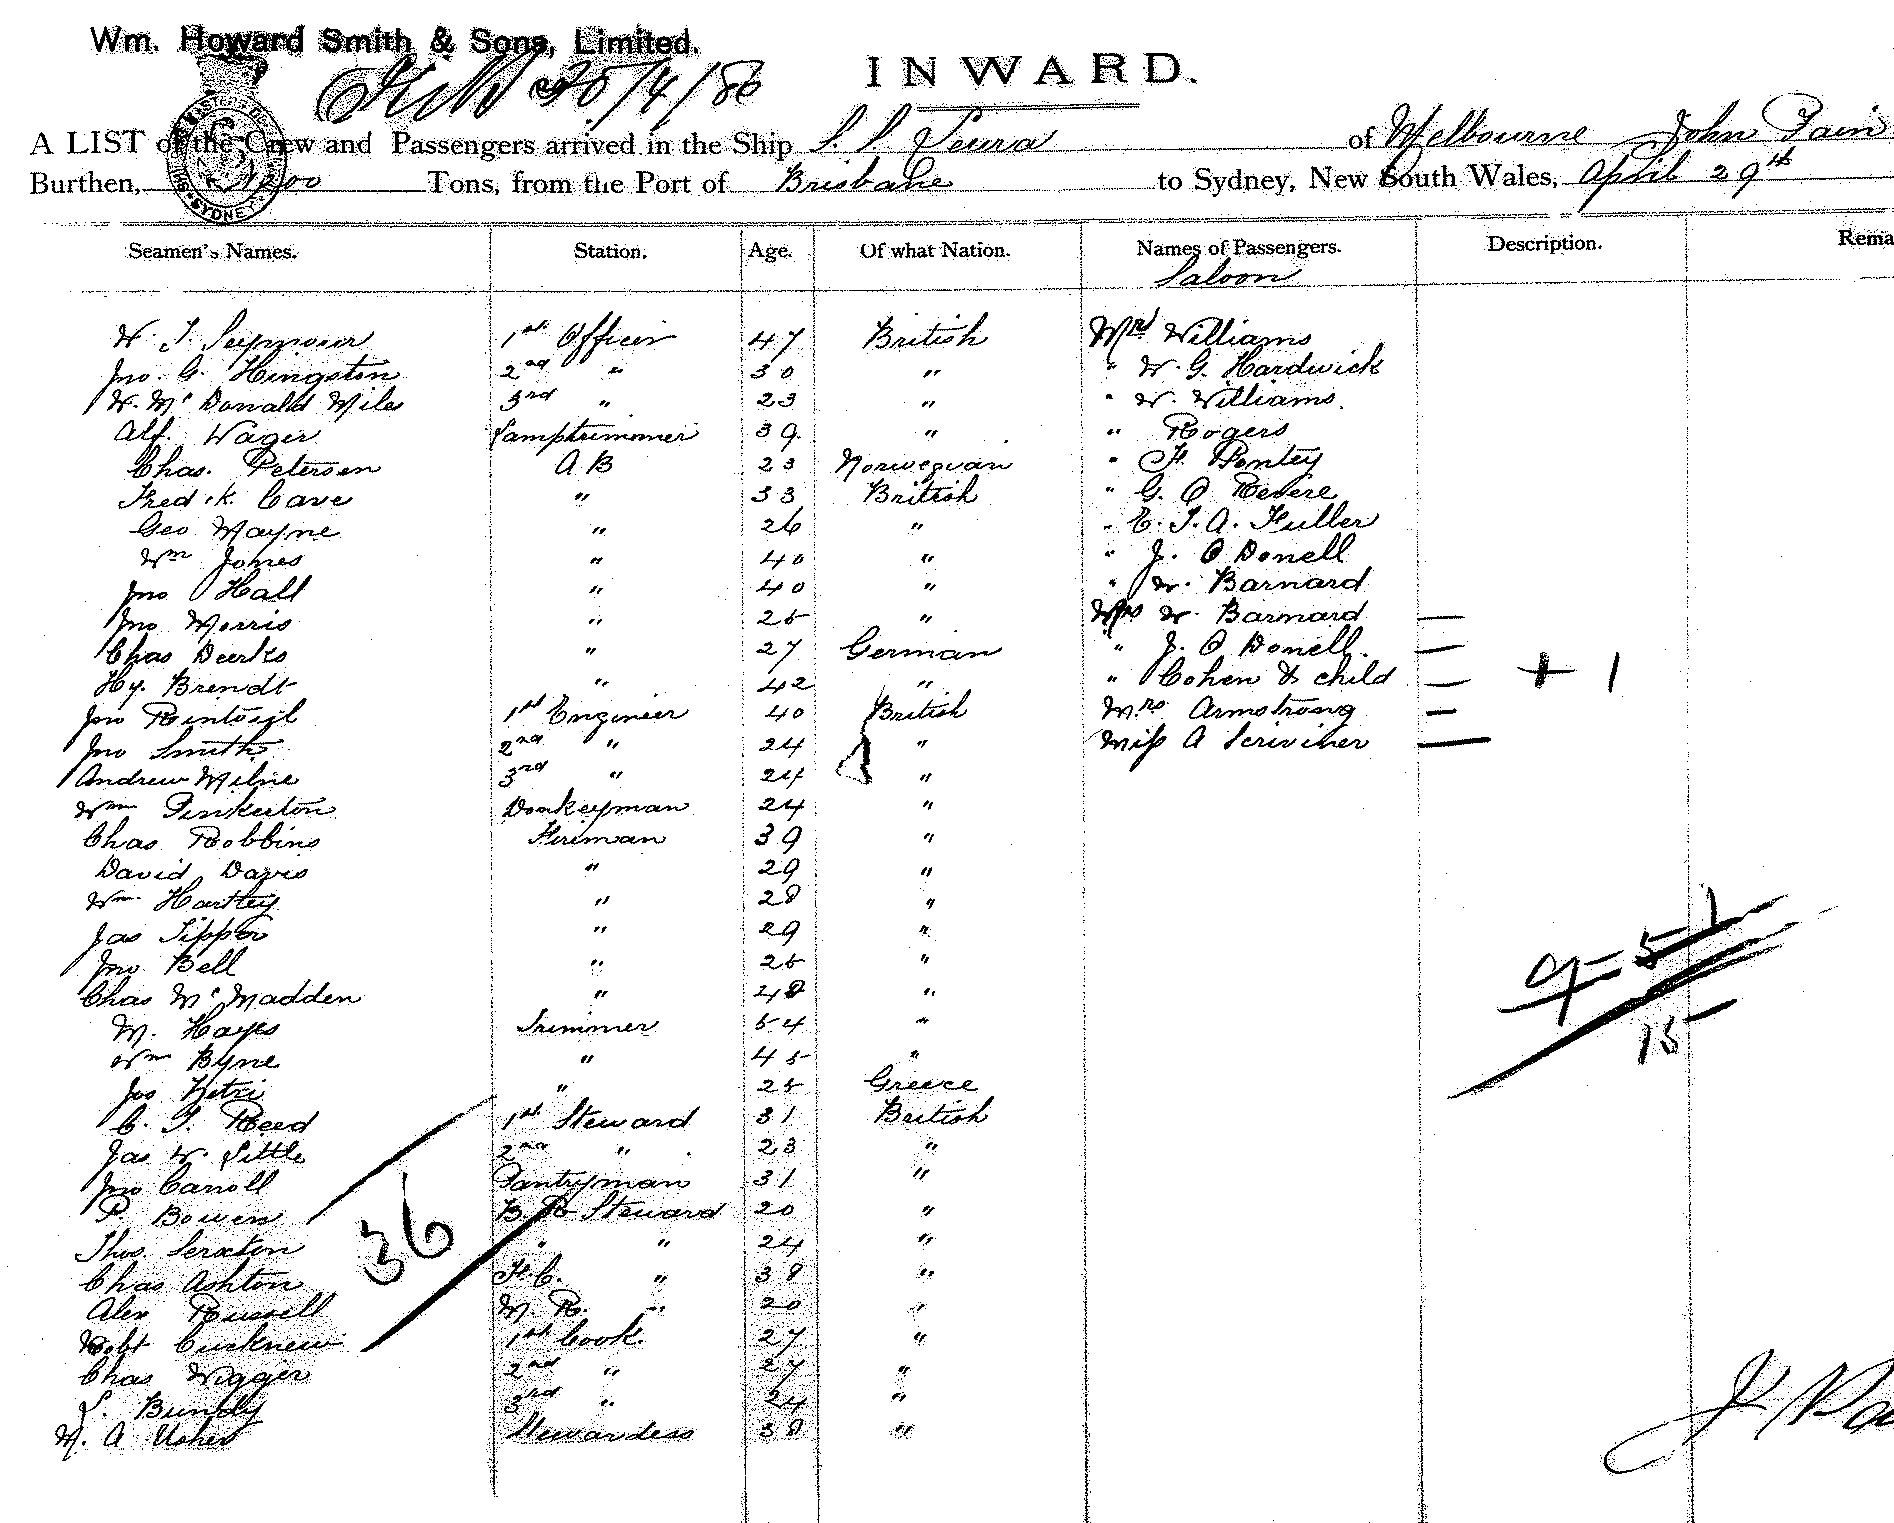 Wm. Howard Smith & Sons, Limited.
30/4/86
INWARD.
A LIST of the Crew and Passengers arrived in the Ship S. S. Leura of Melbourne John Pain
Burthen, 1200 Tons, from the Port of Brisbane to Sydney, New South Wales, April 29th
SYDNEY
Seamen's Names. Station. Age. Of what Nation. Names of Passengers. Description. Rema
Saloon
W. T. Seymour 1st Officer 47 British Mr Williams
Jno. G. Hingston 2nd " 30 " " W. G. Hardwick
W. Mc Donald Miles 3rd " 23 " " W. Williams.
Alf. Wager Lamptrimmer 39 " " Rogers
Chas. Petersen A B 23 Norwegian " F. Pontey
Fred.k Cave " 33 British " G. O Revere
Geo Mayne " 26 " " E. T. A. Fuller
Wm Jones " 40 " " J. O Donell
Jno Hall " 40 " " W. Barnard
Jno Morris " 25 " Mrs W. Barnard —
Chas Deerks " 27 German " J. O Donell. —
Hy. Brendt " 42 " " Cohen & child — + 1
Jno Rintoul 1st Engineer 40 British Mrs Armstrong —
Jno Smith 2nd " 24 " Miss A Scriviner —
Andrew Milne 3rd " 24 "
Wm Pinkerton Donkeyman 24 "
Chas Robbins Fireman 39 "
David Davis " 29 "
Wm Hartley " 28 "
Jas Tipper " 29 "
Jno Bell " 25 "
9-5-1
Chas Mc Madden " 48 "
M. Hayes Trimmer 54 "
15
Wm Byne " 45 "
Jos Petri " 25 Greece
C. T. Reed 1st Steward 31 British
Jas W. Little 2nd " 23 "
Jno Carroll Pantryman 31 "
P. Bowen B. R Steward 20 "
36
Thos. Serxton " " 24 "
Chas Ashton F. C. " 38 "
Alex Russell M. R. " 20 "
Robt Cusknew 1st Cook. 27 "
Chas Wigger 2nd " 27 "
S. Bundy 3rd " 24 "
M. A Usher Stewardess 38 "
J Pa